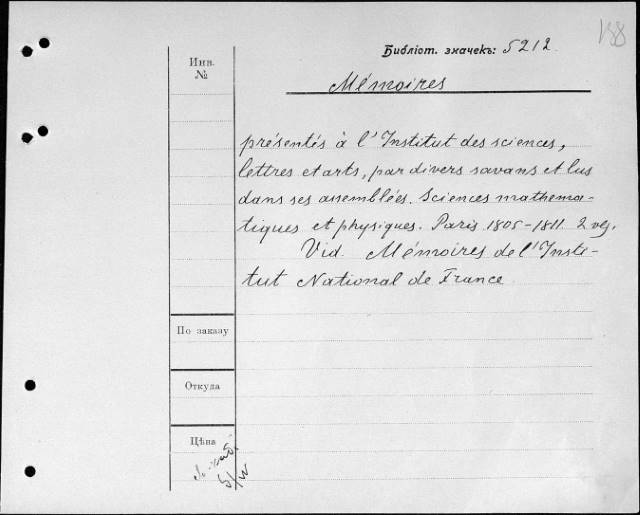 188
Библіот. значекъ: 5212
Инв.
№
Mémoires
présentés à l'Institut des sciences,
lettres et arts, par divers savans et lus
dans ses assemblées. Sciences mathema-
tiques et physiques. Paris 1805-1811. 2 vls.
Vid. Mémoires de l'Insti-
tut National de France
По заказу
Откуда
Цѣна